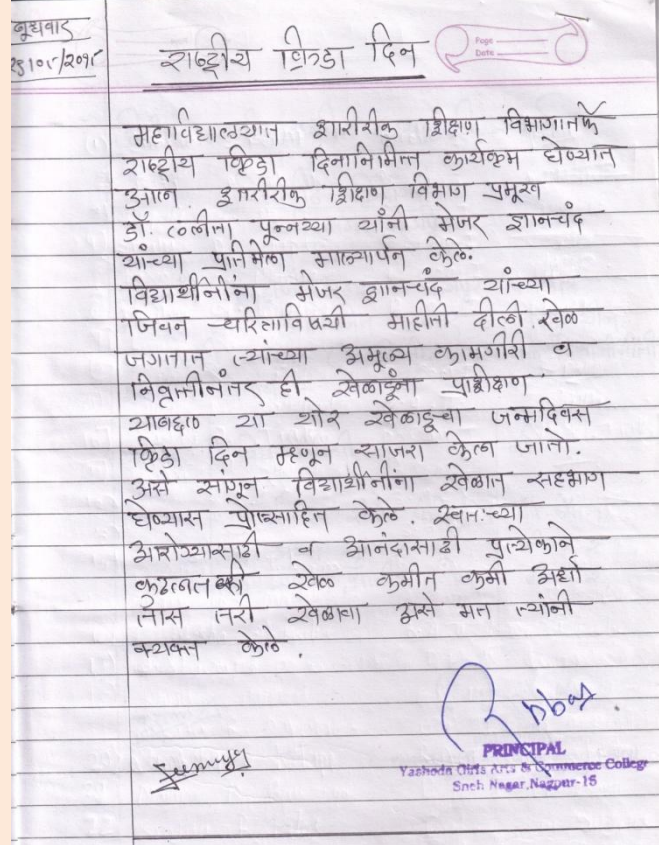 बुधवार
राष्ट्रीय क्रिडा दिन
Page
Date
महाविद्यालयात शारीरीक शिक्षण विभागातर्फे
राष्ट्रीय क्रिडा दिनानिमित्त कार्यक्रम घेण्यात
आला. शारीरीक शिक्षण विभाग प्रमुख
डॉ. ललीता पुन्नय्या यांनी मेजर ज्ञानचंद
यांच्या प्रतिमेला माल्यार्पन केले.
विद्यार्थीनींना मेजर ज्ञानचंद यांच्या
जिवन चरित्राविषयी माहीती दीली. खेळ
जगातात त्यांच्या अमूल्य कामगीरी व
निवृत्तीनंतर ही खेळाडूंना प्रशिक्षण
याबद्दल या थोर खेळाडूचा जन्मदिवस
क्रिडा दिन म्हणून साजरा केला जातो.
असे सांगून विद्यार्थीनींना खेळात सहभाग
घेण्यास प्रोत्साहित केले. स्वतःच्या
आरोग्यासाठी व आनंदासाठी प्रत्येकाने
कुठलाही खेळ कमीत कमी अर्धा
तास तरी खेळावा असे मत त्यांनी
व्यक्त केले.
PRINCIPAL
Yashoda Girls Arts & Commerce College
Sneh Nagar, Nagpur-15